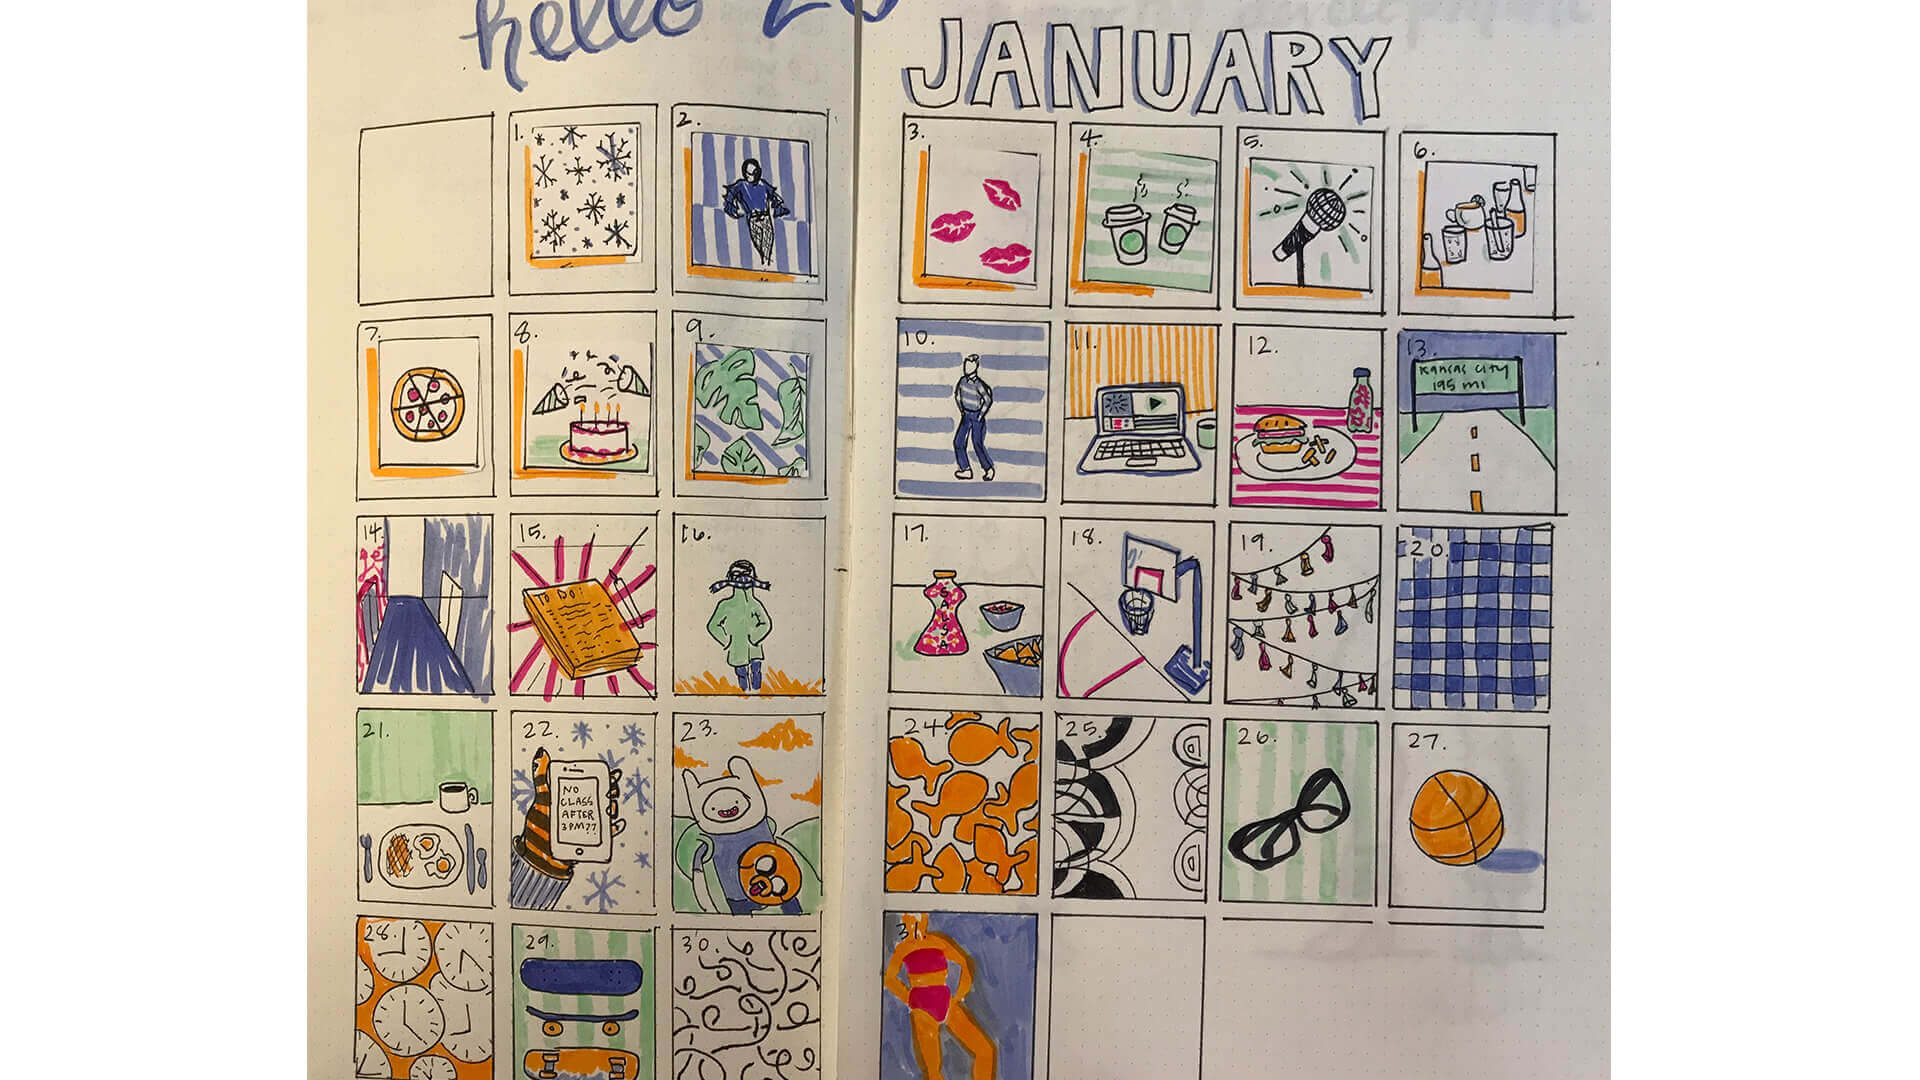 hello 20
JANUARY
1.
2.
3.
4.
5.
6.
7.
8.
9.
10.
11.
12.
13.
KANSAS CITY
195 mi
14.
15.
TO DO:
16.
17.
SALSA
18.
19.
20.
21.
22.
NO
CLASS
AFTER
3PM??
23.
24.
25.
26.
27.
28.
29.
30.
31.